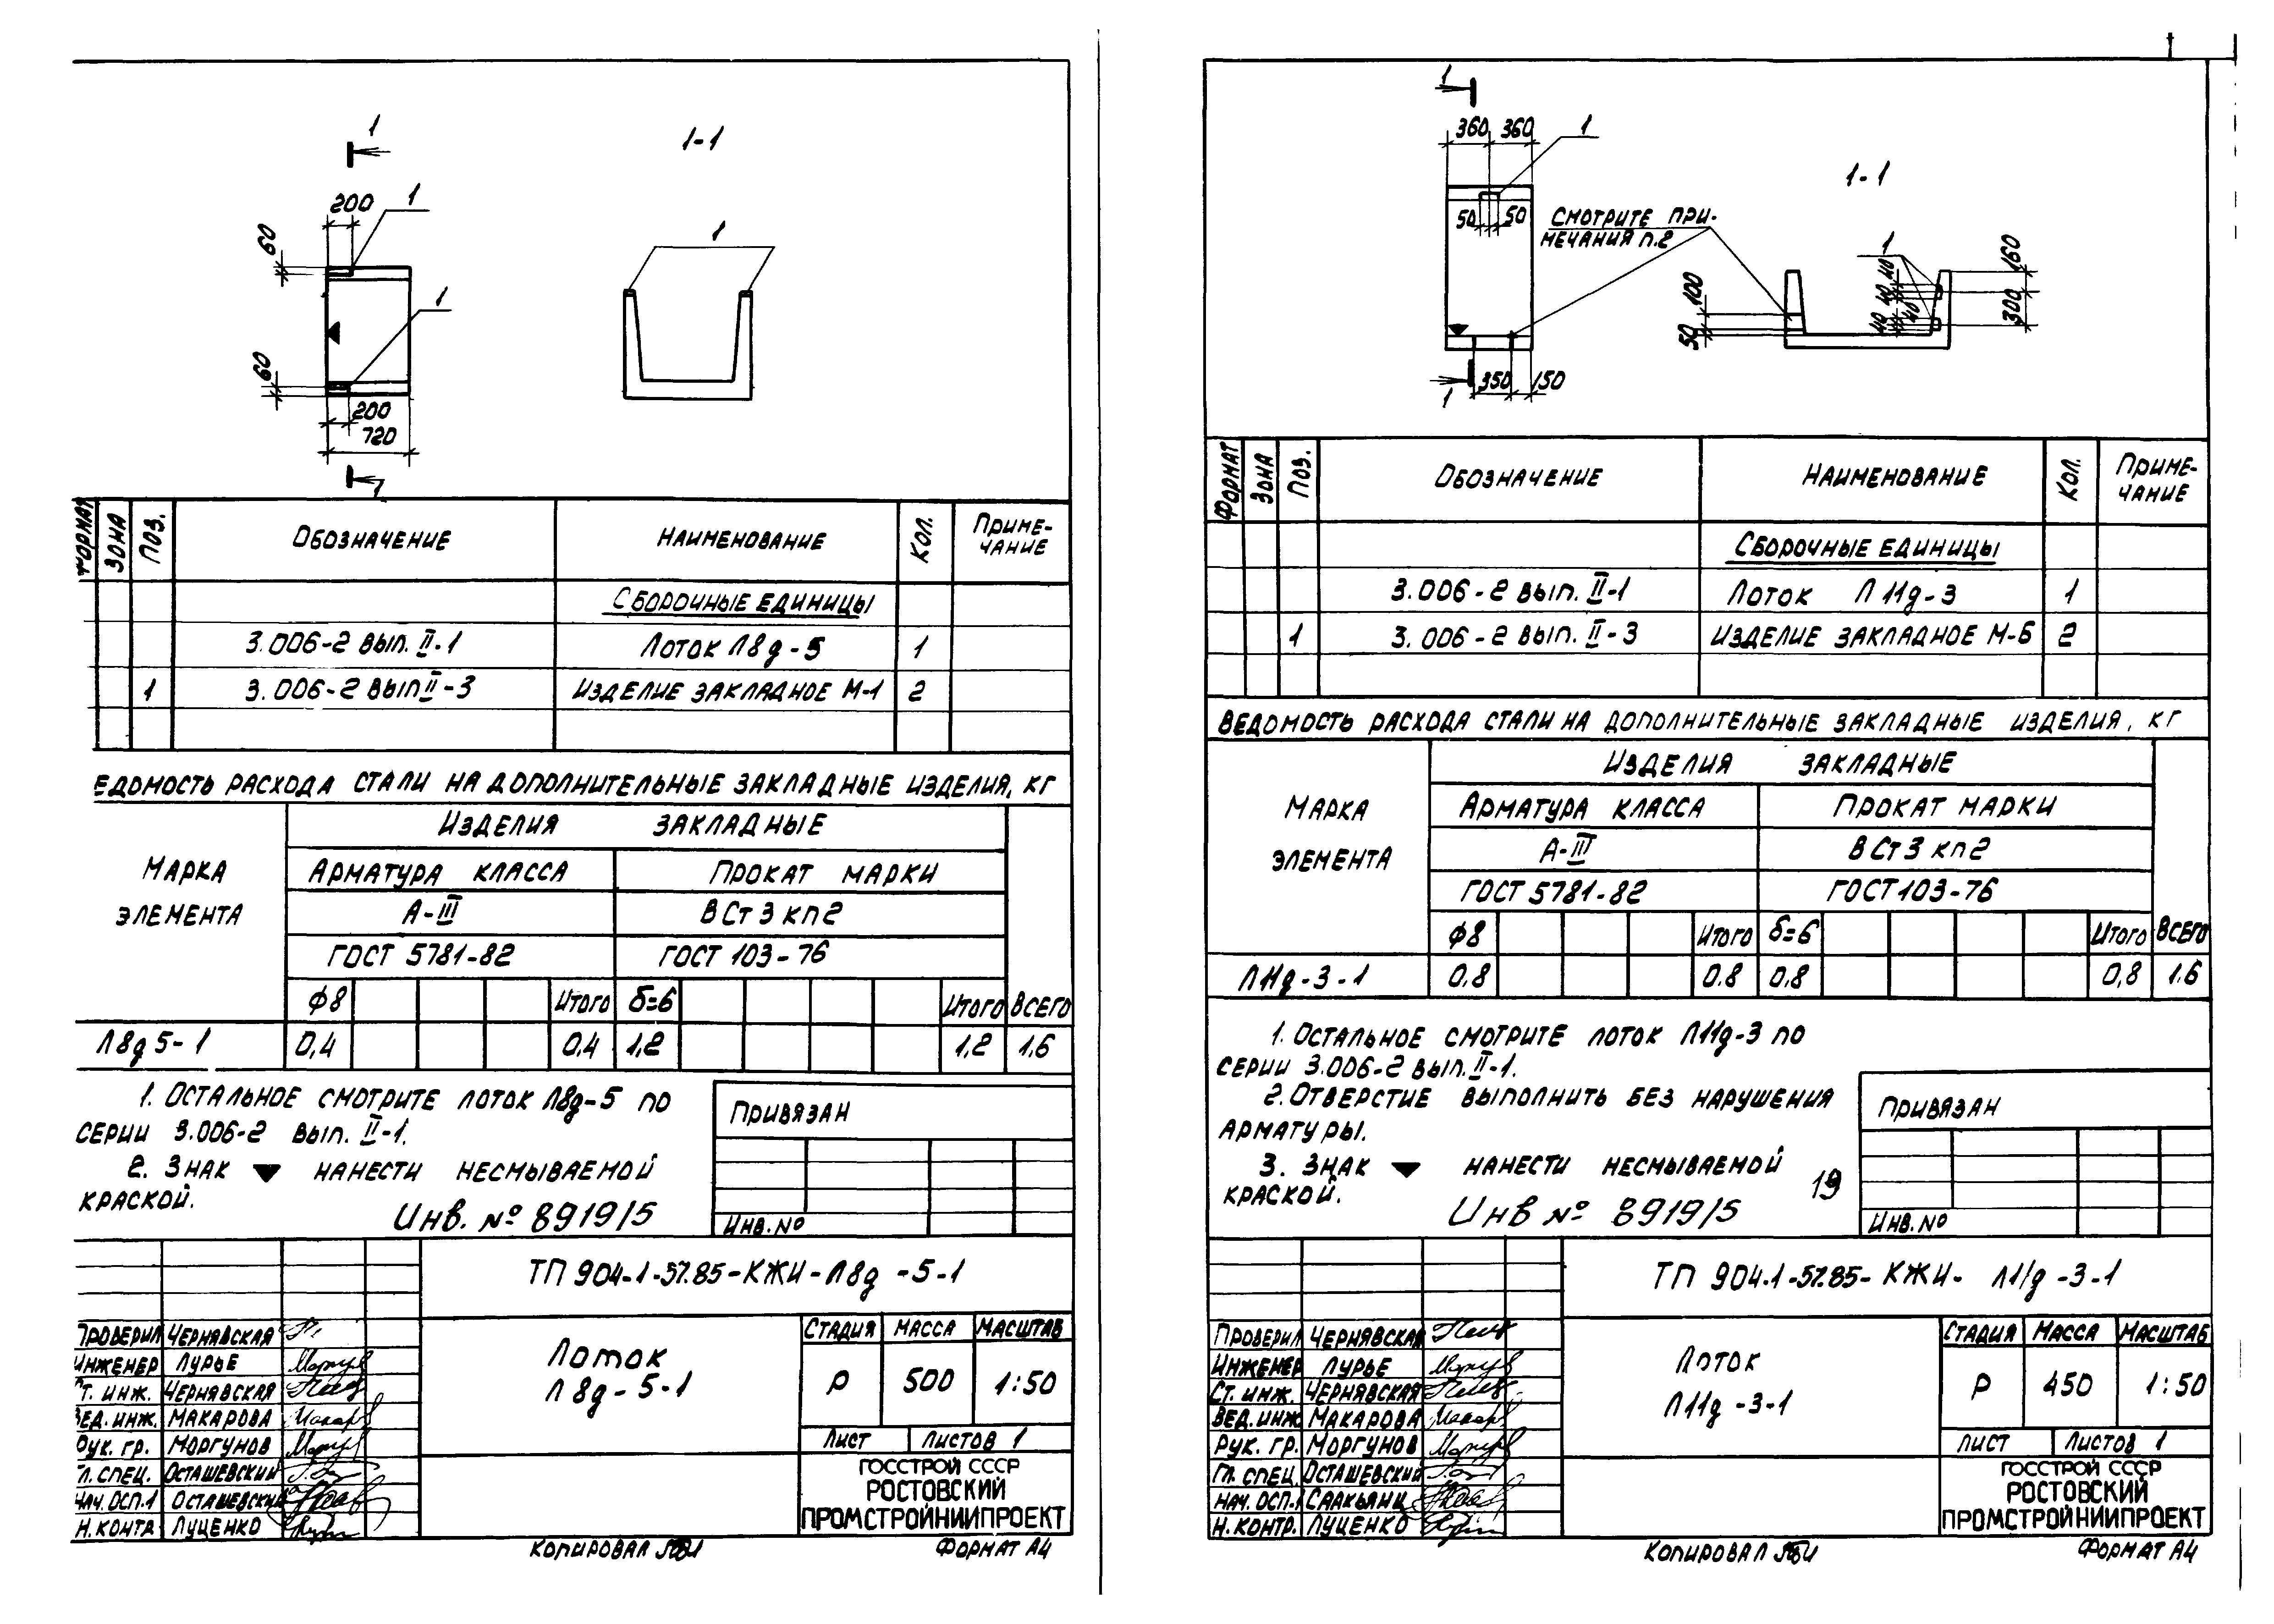 1
1-1
200
1
1
60
1
60
200
720
1
ФОРМАТ ЗОНА ПОЗ. ОБОЗНАЧЕНИЕ НАИМЕНОВАНИЕ КОЛ. ПРИМЕ-
ЧАНИЕ
СБОРОЧНЫЕ ЕДИНИЦЫ
3.006-2 ВЫП. II-1 ЛОТОК Л8д-5 1
1 3.006-2 ВЫП II-3 ИЗДЕЛИЕ ЗАКЛАДНОЕ М-1 2
ЕДОМОСТЬ РАСХОДА СТАЛИ НА ДОПОЛНИТЕЛЬНЫЕ ЗАКЛАДНЫЕ ИЗДЕЛИЯ, КГ
ИЗДЕЛИЯ ЗАКЛАДНЫЕ
МАРКА
ЭЛЕМЕНТА
АРМАТУРА КЛАССА ПРОКАТ МАРКИ
А-III ВСт3кп2
ГОСТ 5781-82 ГОСТ 103-76
ф8 ИТОГО δ=6 ИТОГО ВСЕГО
Л8д5-1 0,4 0,4 1,2 1,2 1,6
1. ОСТАЛЬНОЕ СМОТРИТЕ ЛОТОК Л8д-5 ПО
СЕРИИ 3.006-2 ВЫП. II-1.
2. ЗНАК ▼ НАНЕСТИ НЕСМЫВАЕМОЙ
КРАСКОЙ.
ИНВ. № 8919/5
ПРИВЯЗАН
ИНВ. №
ТП 904-1-57.85-КЖИ-Л8д-5-1
ПРОВЕРИЛ ЧЕРНЯВСКАЯ
ИНЖЕНЕР ЛУРЬЕ
СТ. ИНЖ. ЧЕРНЯВСКАЯ
ВЕД. ИНЖ. МАКАРОВА
РУК. ГР. МОРГУНОВ
ГЛ. СПЕЦ. ОСТАШЕВСКИЙ
НАЧ. ОСП.1 ОСТАШЕВСКИЙ
Н. КОНТР ЛУЦЕНКО
ЛОТОК
Л8д-5-1
СТАДИЯ МАССА МАСШТАБ
Р 500 1:50
ЛИСТ ЛИСТОВ 1
ГОССТРОЙ СССР
РОСТОВСКИЙ
ПРОМСТРОЙНИИПРОЕКТ
КОПИРОВАЛ
ФОРМАТ А4
1
360 360
1
1-1
50 50
СМОТРИТЕ ПРИ-
МЕЧАНИЯ П.2
1
160
300
40
40
40
40
100
50
350 150
1
ФОРМАТ ЗОНА ПОЗ. ОБОЗНАЧЕНИЕ НАИМЕНОВАНИЕ КОЛ. ПРИМЕ-
ЧАНИЕ
СБОРОЧНЫЕ ЕДИНИЦЫ
3.006-2 ВЫП. II-1 ЛОТОК Л11д-3 1
1 3.006-2 ВЫП. II-3 ИЗДЕЛИЕ ЗАКЛАДНОЕ М-6 2
ВЕДОМОСТЬ РАСХОДА СТАЛИ НА ДОПОЛНИТЕЛЬНЫЕ ЗАКЛАДНЫЕ ИЗДЕЛИЯ, КГ
ИЗДЕЛИЯ ЗАКЛАДНЫЕ
МАРКА
ЭЛЕМЕНТА
АРМАТУРА КЛАССА ПРОКАТ МАРКИ
А-III ВСт3кп2
ГОСТ 5781-82 ГОСТ 103-76
ф8 ИТОГО δ=6 ИТОГО ВСЕГО
Л11д-3-1 0,8 0.8 0,8 0,8 1.6
1. ОСТАЛЬНОЕ СМОТРИТЕ ЛОТОК Л11д-3 ПО
СЕРИИ 3.006-2 ВЫП. II-1.
2. ОТВЕРСТИЕ ВЫПОЛНИТЬ БЕЗ НАРУШЕНИЯ
АРМАТУРЫ.
3. ЗНАК ▼ НАНЕСТИ НЕСМЫВАЕМОЙ
КРАСКОЙ.
19
ИНВ № 8919/5
ПРИВЯЗАН
ИНВ. №
ТП 904.1-57.85-КЖИ-Л11д-3-1
ПРОВЕРИЛ ЧЕРНЯВСКАЯ
ИНЖЕНЕР ЛУРЬЕ
СТ. ИНЖ. ЧЕРНЯВСКАЯ
ВЕД. ИНЖ МАКАРОВА
РУК. ГР. МОРГУНОВ
ГЛ. СПЕЦ. ОСТАШЕВСКИЙ
НАЧ. ОСП.1 СААКЬЯНЦ
Н. КОНТР. ЛУЦЕНКО
ЛОТОК
Л11д-3-1
СТАДИЯ МАССА МАСШТАБ
Р 450 1:50
ЛИСТ ЛИСТОВ 1
ГОССТРОЙ СССР
РОСТОВСКИЙ
ПРОМСТРОЙНИИПРОЕКТ
КОПИРОВАЛ
ФОРМАТ А4